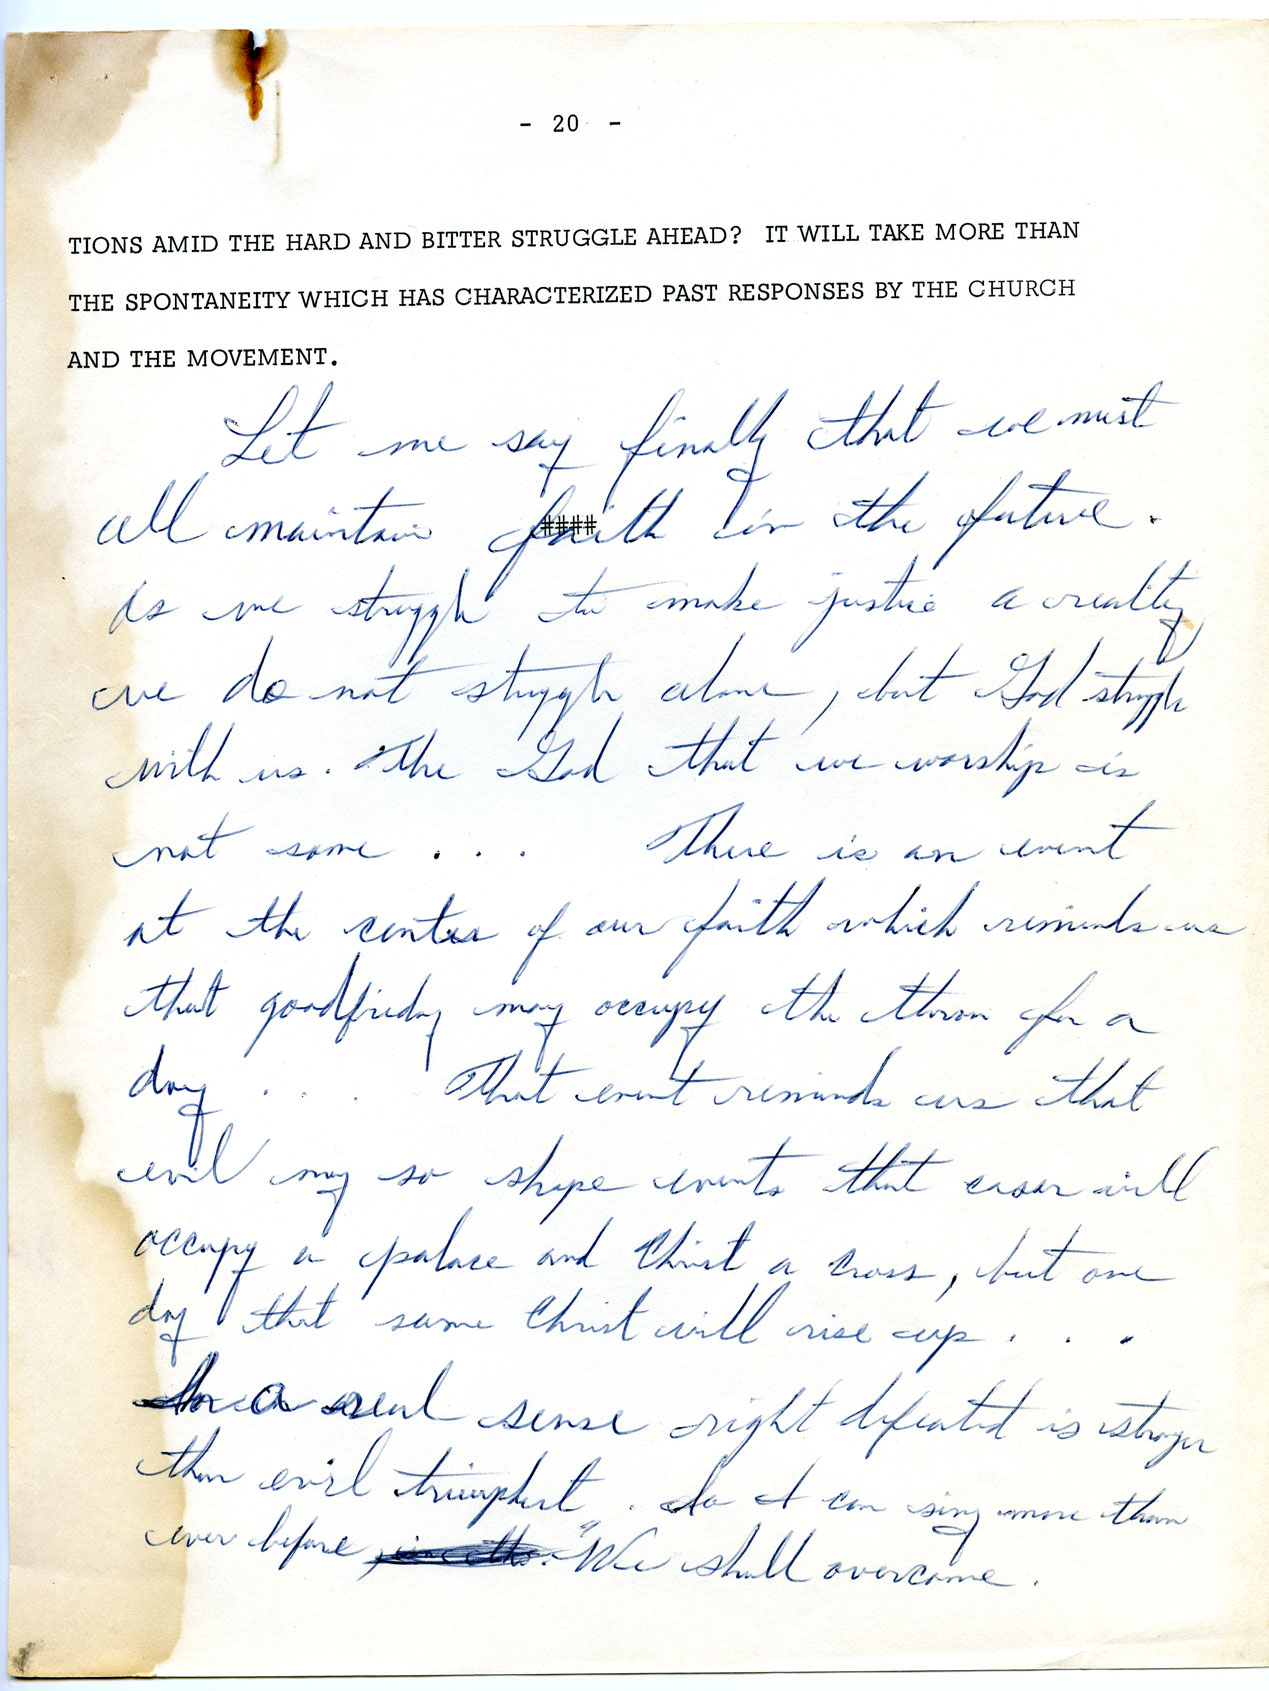 - 20 -
TIONS AMID THE HARD AND BITTER STRUGGLE AHEAD? IT WILL TAKE MORE THAN
THE SPONTANEITY WHICH HAS CHARACTERIZED PAST RESPONSES BY THE CHURCH
AND THE MOVEMENT.
Let me say finally that we must
all maintain faith in the future.
As we struggle to make justice a reality
we do not struggle alone, but God struggle
with us. The God that we worship is
not some . . . There is an event
at the center of our faith which reminds us
that goodfriday may occupy the thron for a
day . . . That event reminds us that
evil may so shape events that ceasar will
occupy a palace and Christ a cross, but one
day that same Christ will rise up . . .
In a real sense right defeated is stronger
than evil triumphant. So I can sing more than
ever before "We shall overcome.